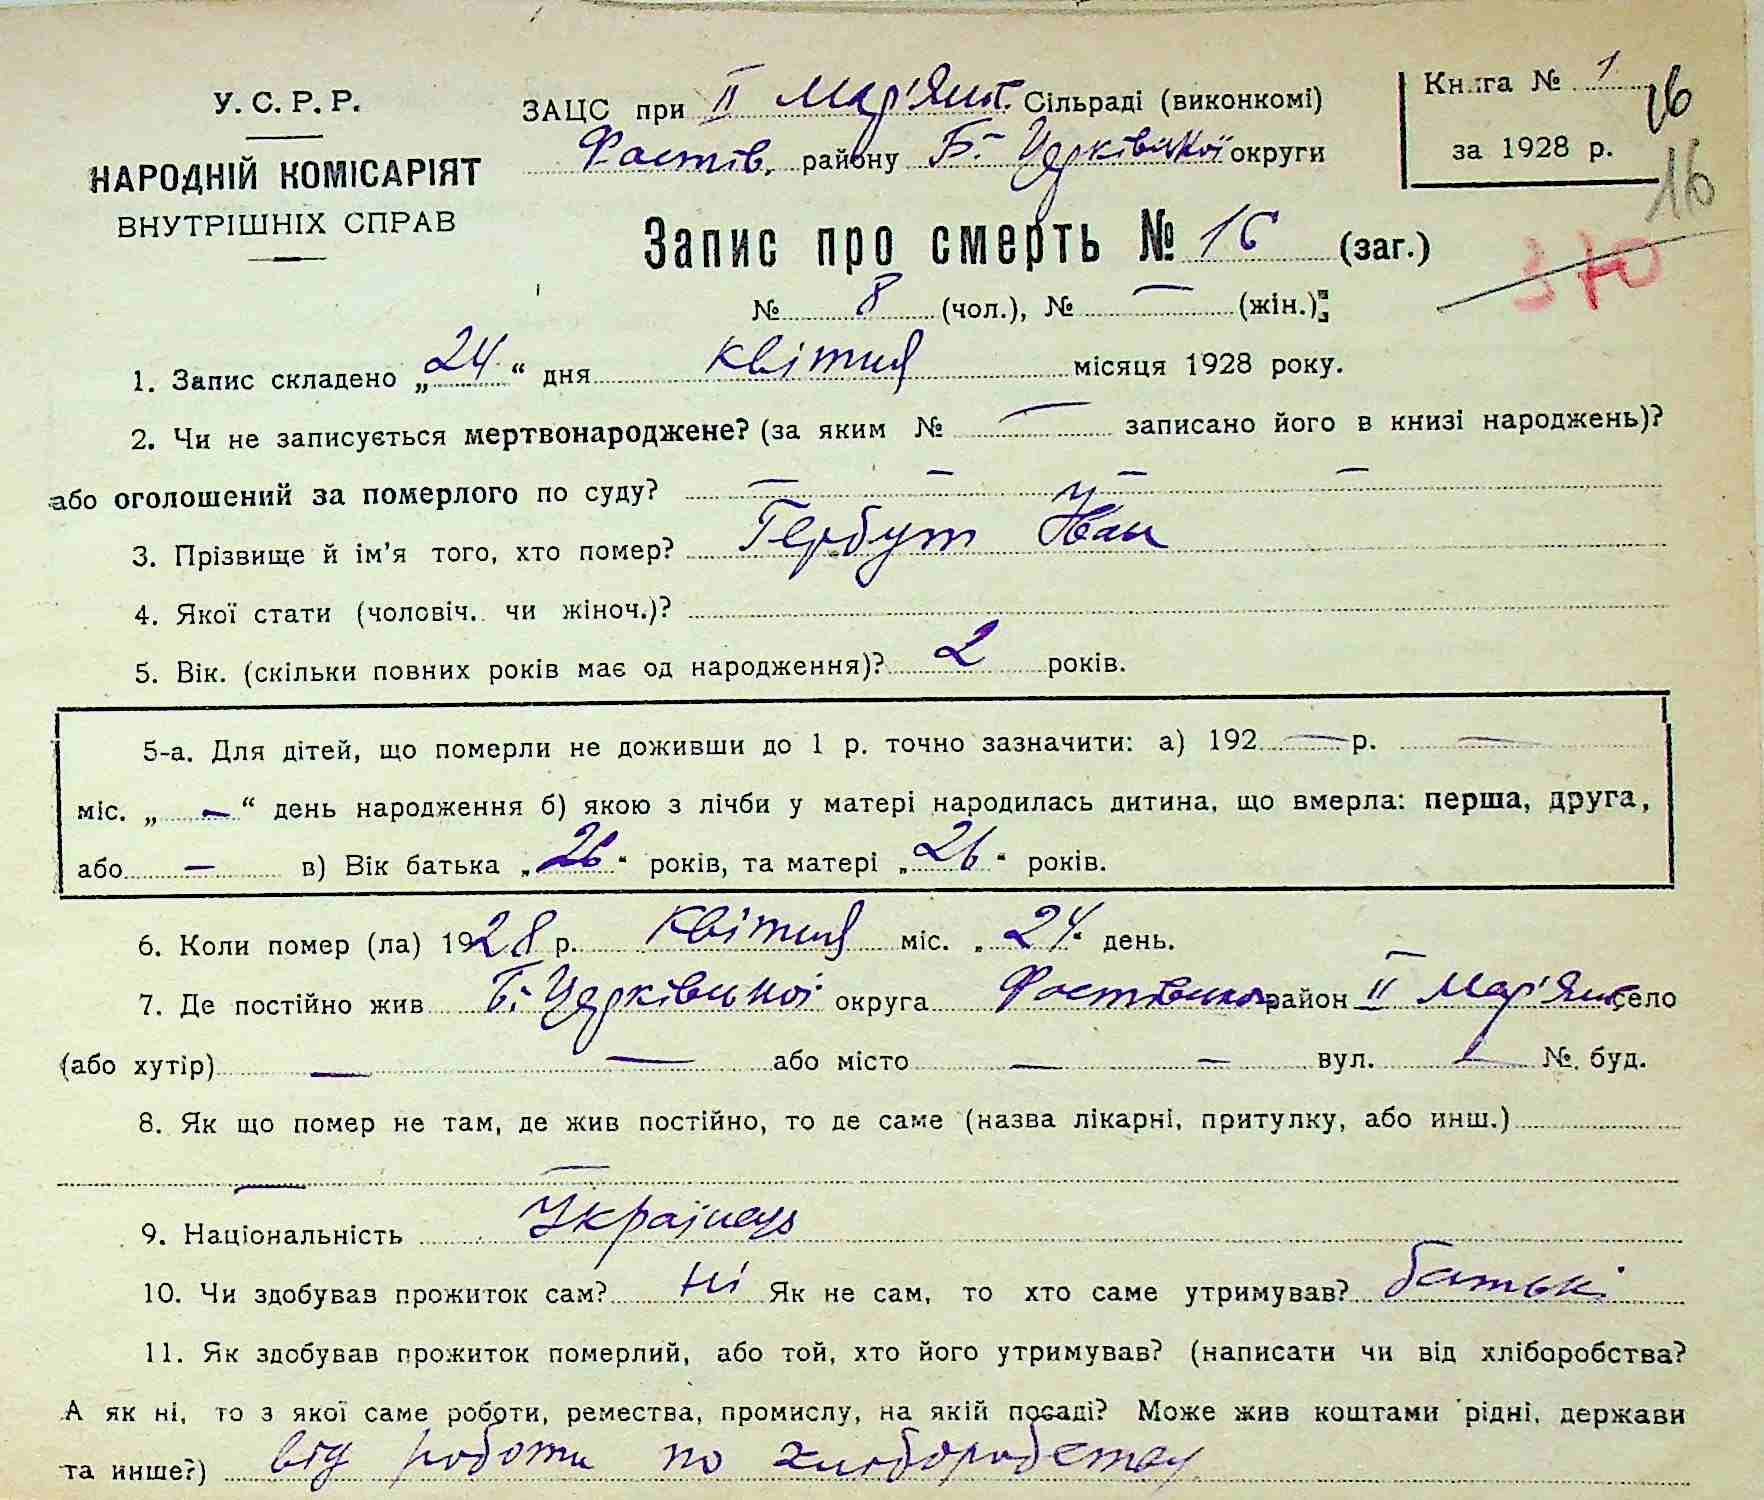 У. С. Р. Р.
НАРОДНІЙ КОМІСАРІЯТ
ВНУТРІШНІХ СПРАВ
ЗАЦС при II Мар'янт. Сільраді (виконкомі)
Фастів. району Б-Церківської округи
Книга № 1
за 1928 р.
16
16
370
Запис про смерть № 16 (заг.)
№ 8 (чол.), № — (жін.)
1. Запис складено „24“ дня квітня місяця 1928 року.
2. Чи не записується мертвонароджене? (за яким № — записано його в книзі народжень)?
або оголошений за померлого по суду? — — — —
3. Прізвище й ім'я того, хто помер? Гербут Іван
4. Якої стати (чоловіч. чи жіноч.)?
5. Вік. (скільки повних років має од народження)? 2 років.
5-а. Для дітей, що померли не доживши до 1 р. точно зазначити: а) 192 — р. —
міс. „—“ день народження б) якою з лічби у матері народилась дитина, що вмерла: перша, друга,
або — в) Вік батька „26“ років, та матері „26“ років.
6. Коли помер (ла) 1928 р. квітня міс. „24“ день.
7. Де постійно жив Б. Церківської округа Фастівського район II Мар'янт село
(або хутір) — — або місто — — вул. — № буд.
8. Як що помер не там, де жив постійно, то де саме (назва лікарні, притулку, або инш.)
— —
9. Національність Українець
10. Чи здобував прожиток сам? Ні Як не сам, то хто саме утримував? батькі
11. Як здобував прожиток померлий, або той, хто його утримував? (написати чи від хліборобства?
А як ні, то з якої саме роботи, ремества, промислу, на якій посаді? Може жив коштами рідні, держави
та инше?) від роботи по хліборобству